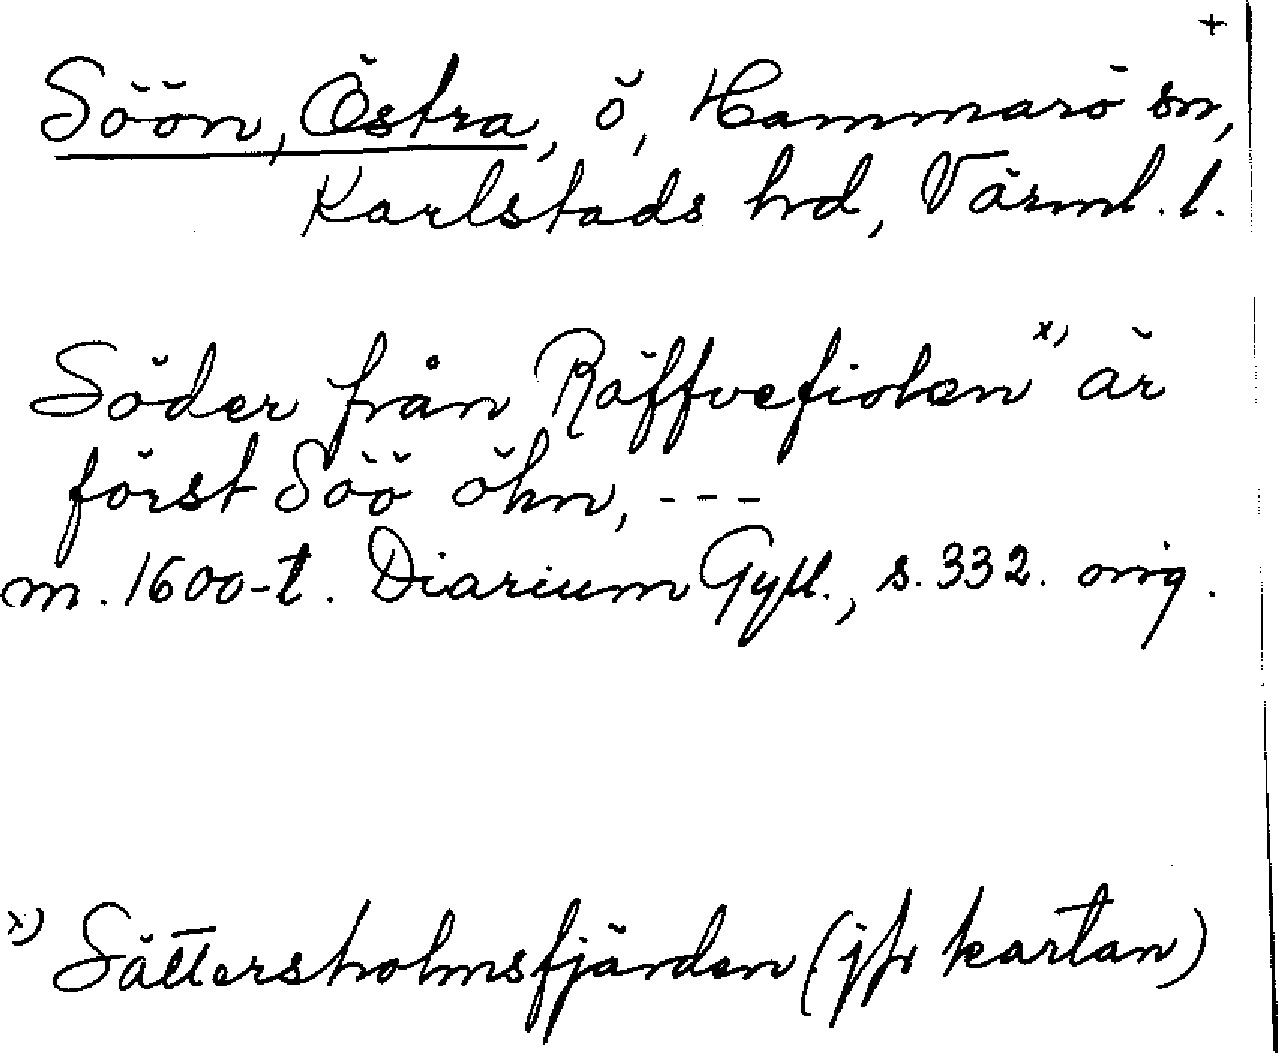 +
Söön, Östra, ö, Hammarö sn,
Karlstads hrd, Värml. l.
Söder från Räffvefiolen x) är
först Söö öhn, ---
m. 1600-t. Diarium Gyll., s. 332. orig.
x) Sättersholmsfjärden (jfr kartan)